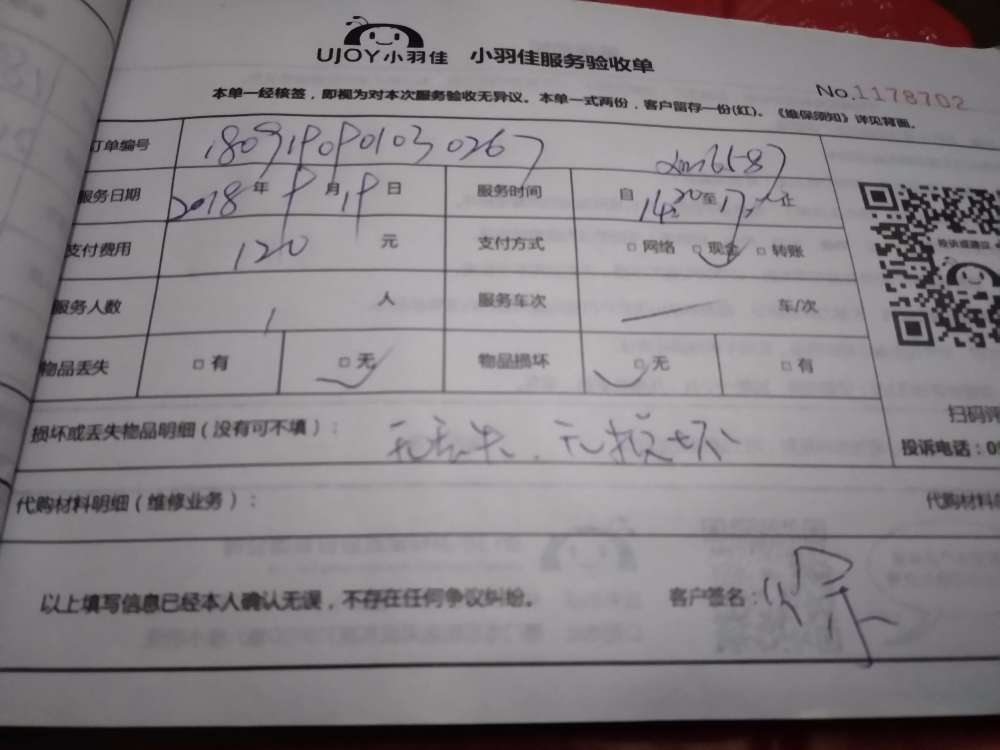 UJOY小羽佳 小羽佳服务验收单
No.1178702
本单一经核签，即视为对本次服务验收无异议。本单一式两份，客户留存一份(红)。《维保须知》详见背面。
订单编号 xm16587
服务日期 2018年9月19日 服务时间 自14:20至17:20止
支付费用 120元 支付方式 □网络 □现金 □转账
服务人数 1人 服务车次 — 车/次
物品丢失 □有 □无 物品损坏 □无 □有
投诉或建议
扫码评
损坏或丢失物品明细（没有可不填）： 无丢失．无损坏
投诉电话：0
代购材料明细（维修业务）： 代购材料
以上填写信息已经本人确认无误，不存在任何争议纠纷。 客户签名：